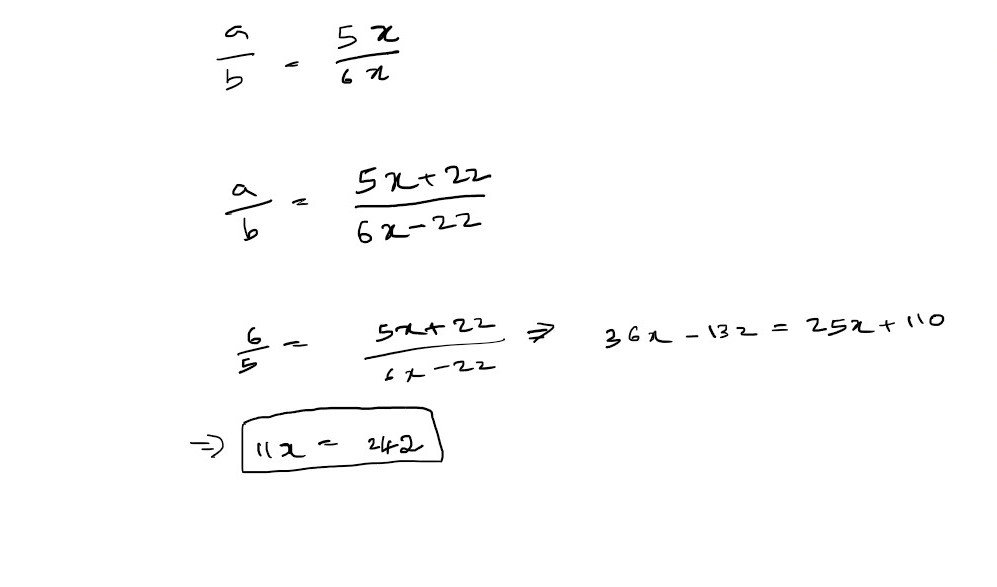 a/b = 5x/6x
a/b = 5x+22/6x-22
6/5 = 5x+22/6x-22 ⇒ 36x - 132 = 25x + 110
⇒ 11x = 242